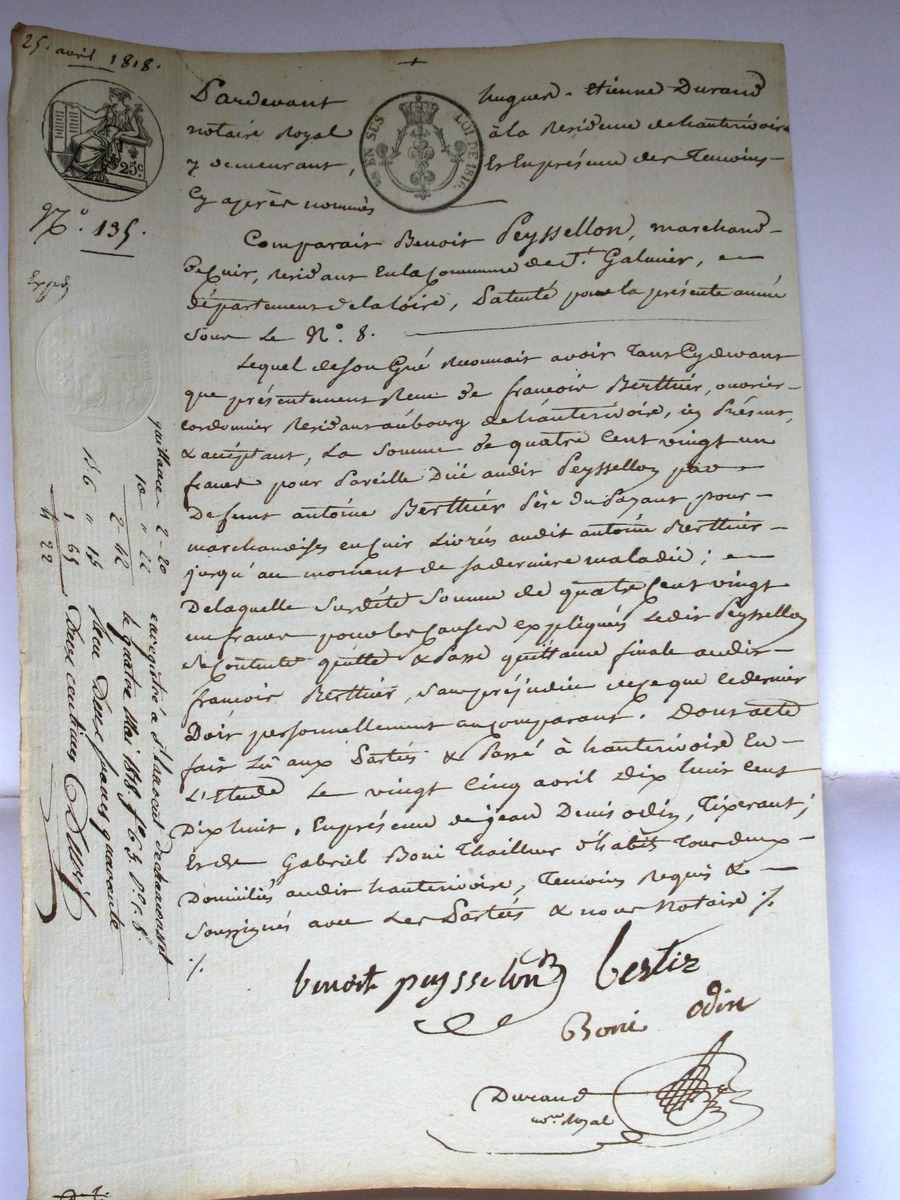 25. avril 1818.
Pardevant hugues-étienne Durand
notaire Royal à la Residence de hauterivoire
y demeurant, Et En présence des Temoins
Cy après nommés
EN SUS LOI DE 1816.
25c
N.o 135.
Comparait Benoit Peyssellon, marchand
de Cuir, residant En la Commune de St. Galmier,
département de la loire, Patenté pour la présente année
sous Le N.o 8.
Lequel de son Gré reconnait avoir tant Cy devant
que présentement Recu de francois Berthier, ouvrier
Cordonnier Residant au bourg de hauterivoire, icy Présent,
& acceptant, La Somme de quatre Cent vingt un
francs pour Pareille Duë audit Peyssellon par
Defunt antoine Berthier Père du Payant pour
marchandises en Cuir Livrés audit antoine Berthier
jusqu'au moment de sa derniere maladie ;
De laquelle Susdite Somme de quatre Cent vingt
un francs pour les Causes expliqués Ledit Peyssellon
Se Contente quitte & Passe quittance finale audit
francois Berthier, sans préjudice de ce que Ce dernier
Doit personnellement au Comparant. Dont acte
fait Lû aux Partiés & Passé à hauterivoire En
L'Etude Le vingt Cinq avril Dix huit Cent
Dix huit, En présence de jean Denis odin, Tixerant ;
Et de Gabriel Boni Thailleur d'habits Tous deux
Domiciliés audit hauterivoire, Temoins Requis &
Soussignés avec Les Partiés & nous Notaire ./.
./.
benoit peysselon bertie
Boni odin
Durand
nore Royal
quittance 2-20
10 " 22
2-42
enregistré à St Laurent de chamousset
le quatre Mai 1818 fo 63. Vo c. 8.
Recu Deux francs quarante
Deux centimes
186 " 15
1 65
4 22